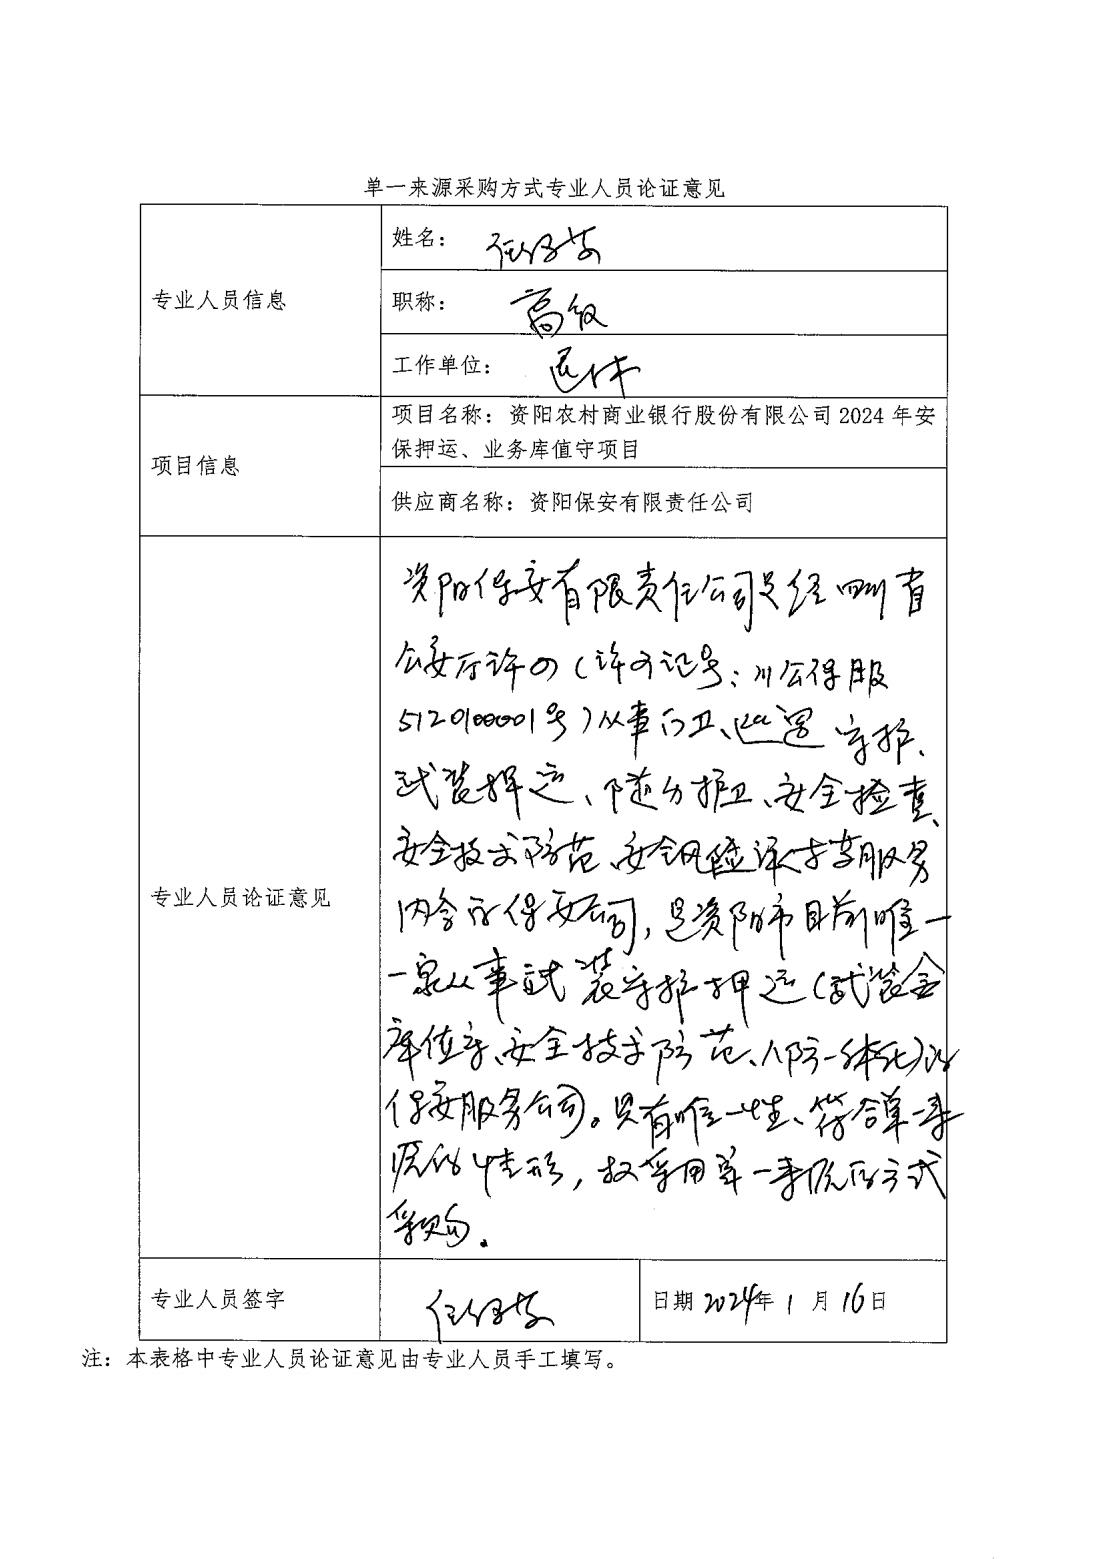 单一来源采购方式专业人员论证意见
专业人员信息
姓名：
职称： 高级
工作单位： 退休
项目信息
项目名称：资阳农村商业银行股份有限公司 2024 年安
保押运、业务库值守项目
供应商名称：资阳保安有限责任公司
专业人员论证意见
资阳保安有限责任公司是经四川省
公安厅许可（许可证号：川公保服
5120100001号）从事门卫、巡逻 守护、
武装押运、随身护卫、安全检查、
安全技术防范、安全风险评估等服务
内容的保安公司，是资阳市目前唯一
一家从事武装守护押运（武装金
库值守、安全技术防范、人防一体化）的
保安服务公司。具有唯一性、符合单一来
源的情形，故采用单一来源的方式
采购。
专业人员签字
日期 2024年 1 月 16日
注：本表格中专业人员论证意见由专业人员手工填写。